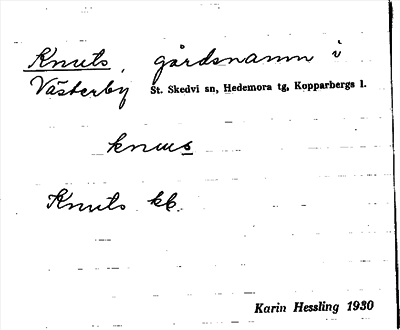 Knuts, gårdsnamn i
Västerby St. Skedvi sn, Hedemora tg, Kopparbergs l.
knus
Knuts kb.
Karin Hessling 1930